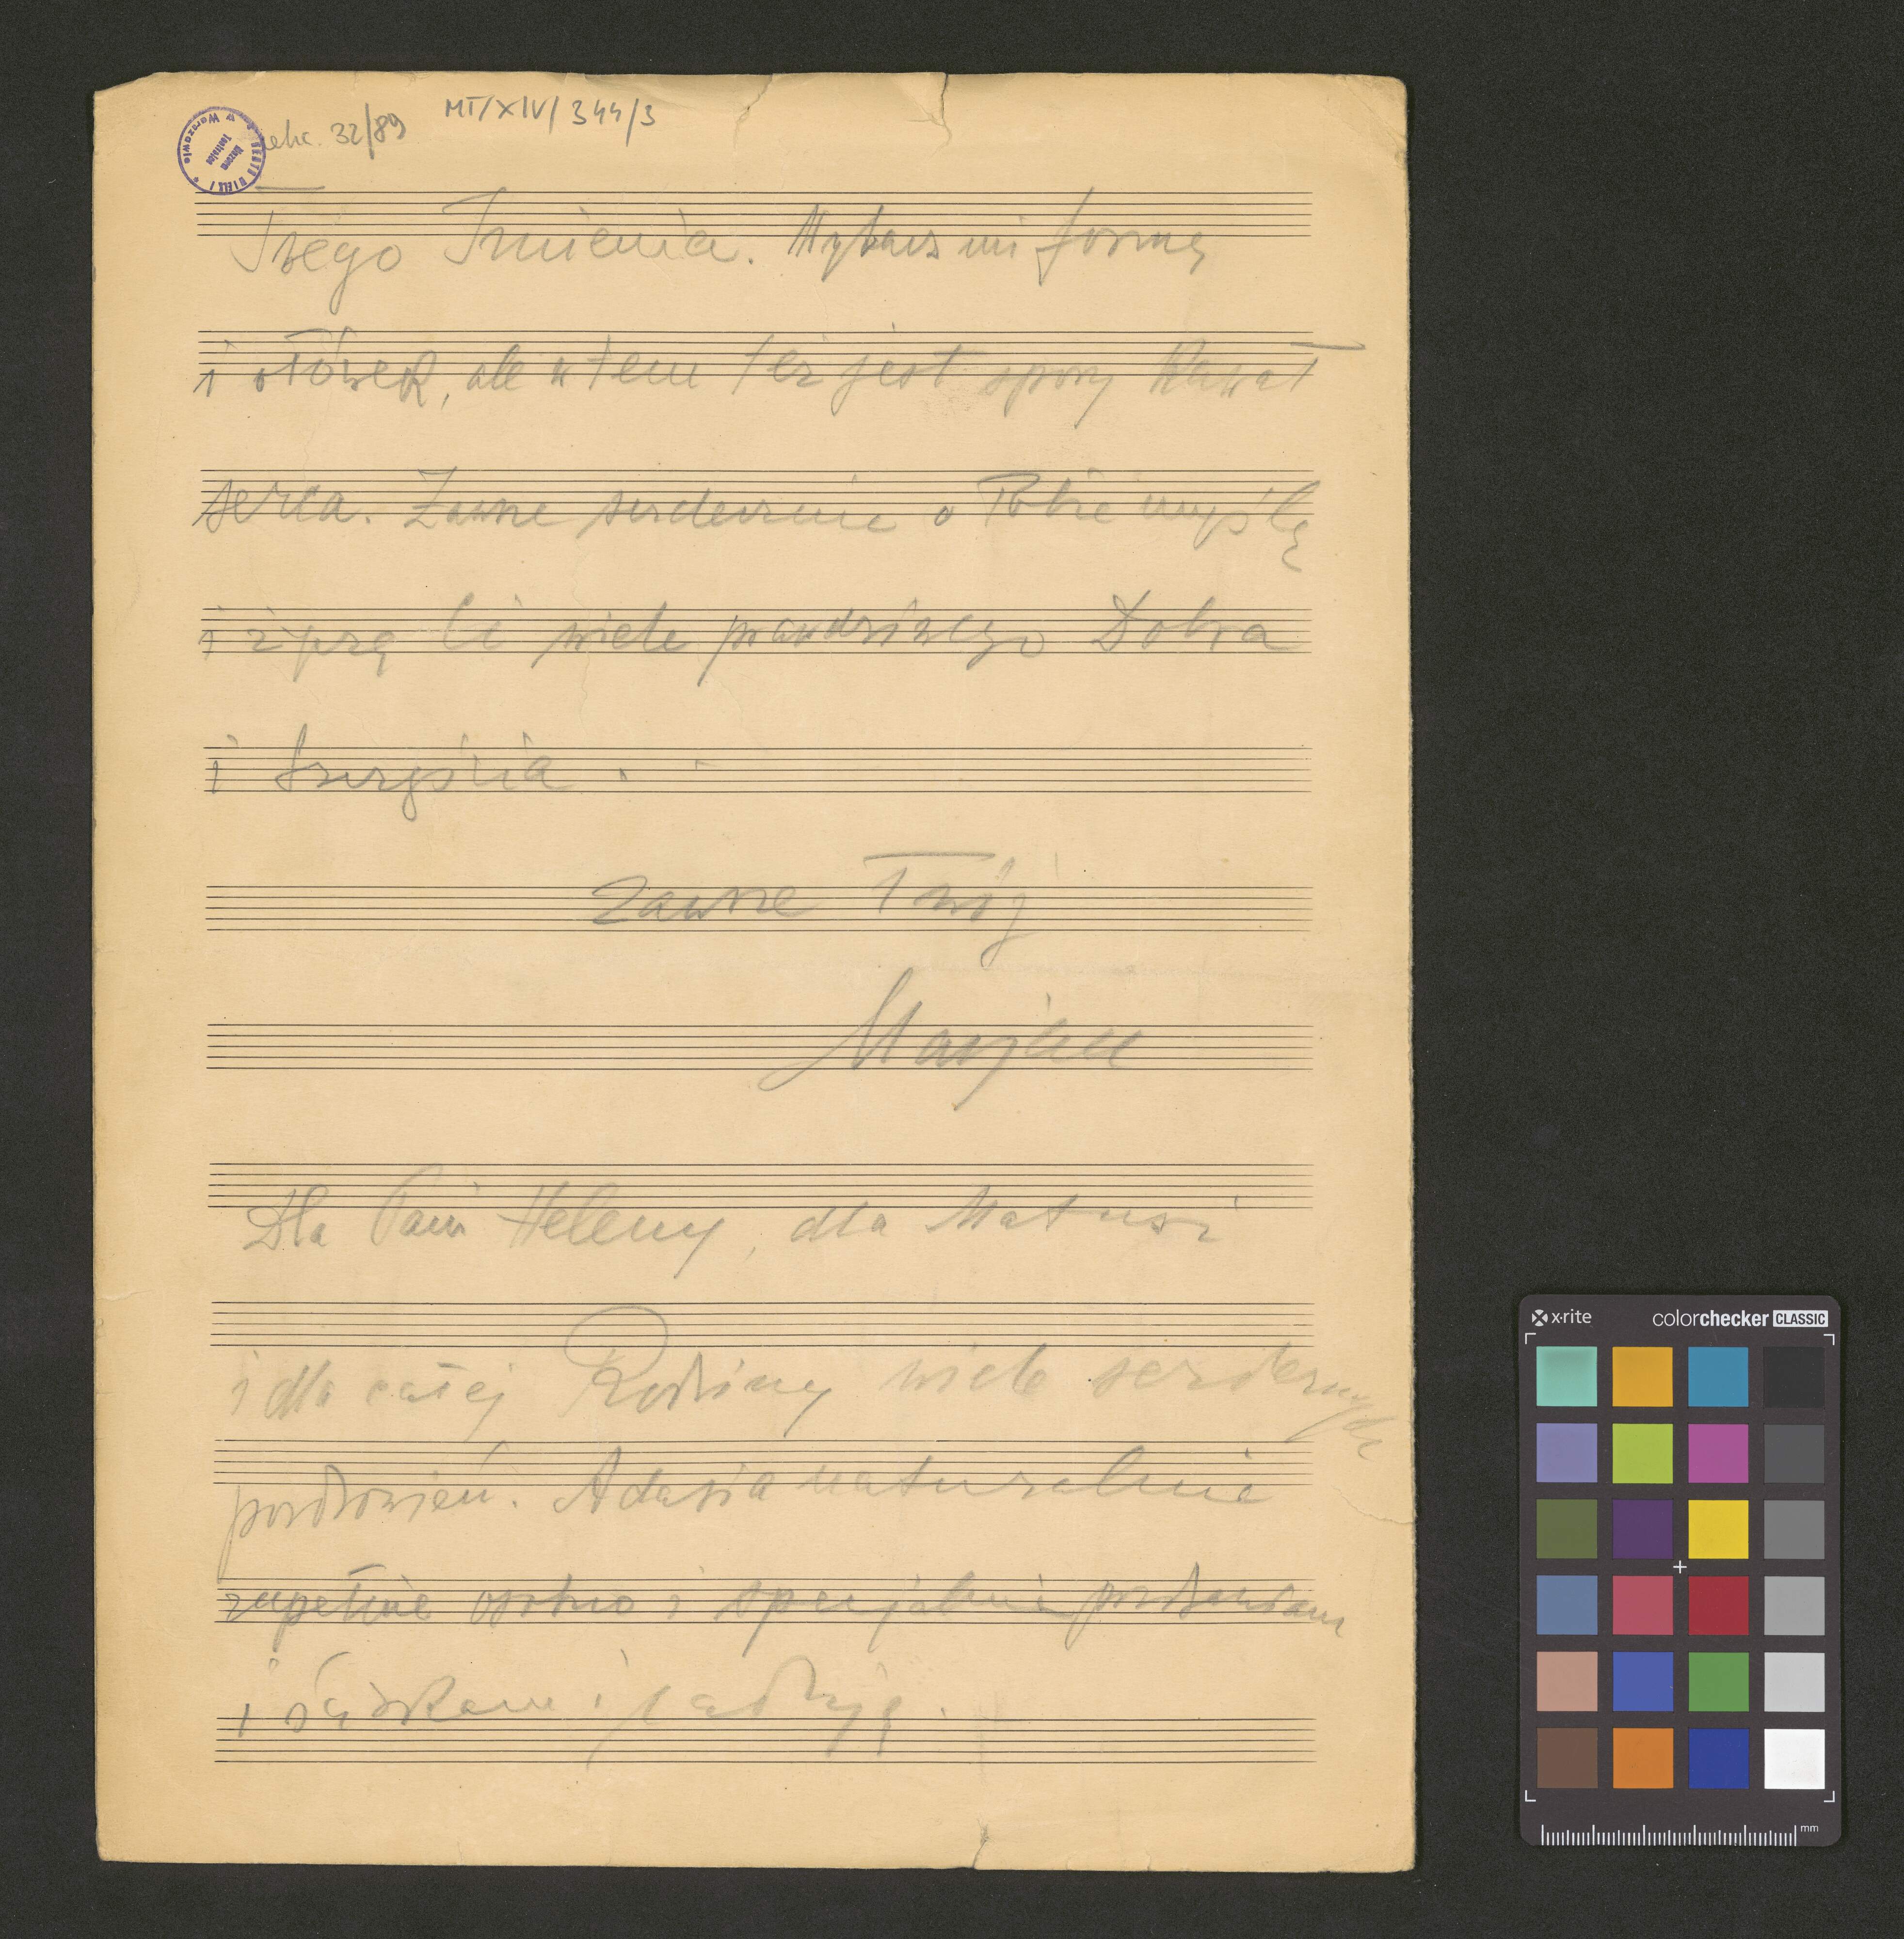 MT/XIV/344/3
32/89
TEATR WIELKI w Warszawie
Muzeum Teatralne
Twego Imienia. Wybacz mi formę
i ołówek, ale w tem też jest spory kawał
serca. Zawsze serdecznie o Tobie myślę
i życzę Ci wiele prawdziwego Dobra
i szczęścia.
Zawsze Twój
Marjan
Dla Pani Heleny, dla Matusi
i dla całej Rodziny wiele serdecznych
pozdrowień. Adasia naturalnie
zupełnie osobno i specjalnie pozdrawiam
i ściskam i
x·rite
colorchecker CLASSIC
mm